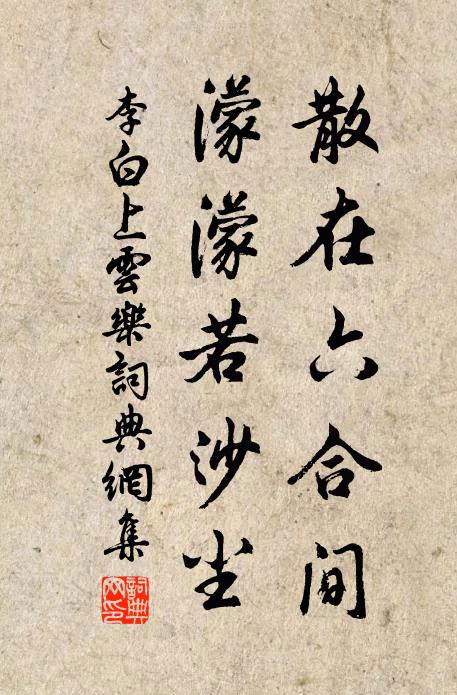 散在六合间
濛濛若沙尘
李白上雲樂詞典網集
詞典网印